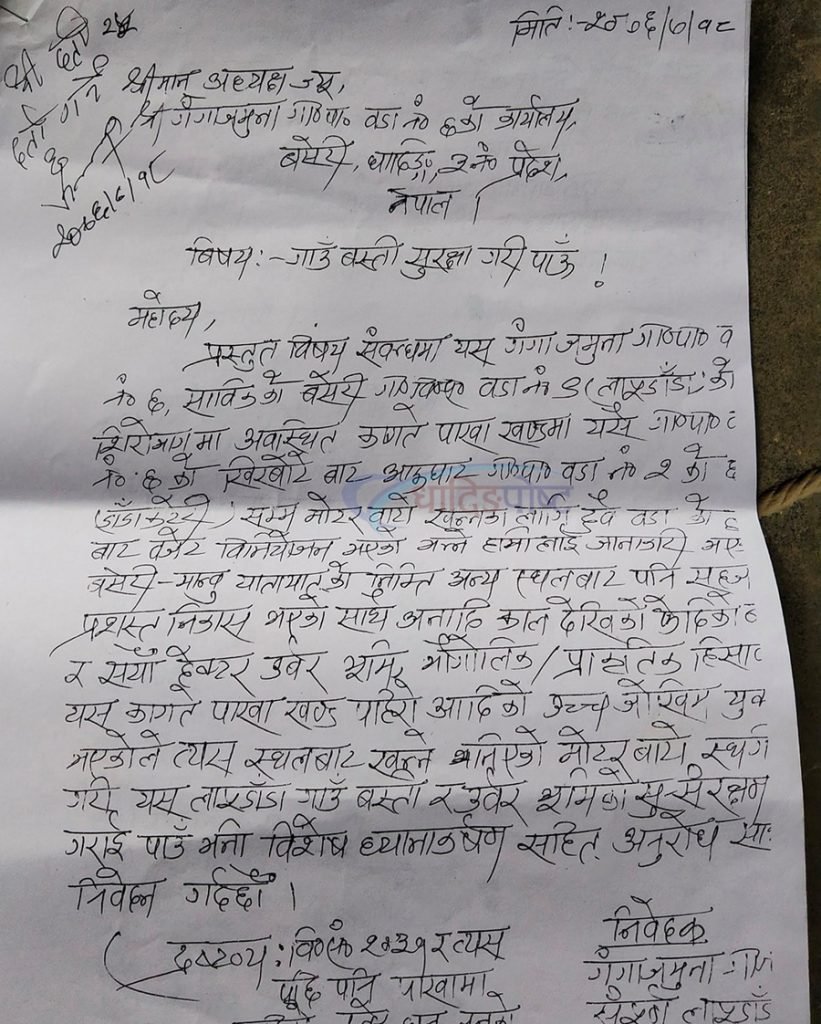 मिति:-२०७६/७/१८
श्री दर्ता
दर्ता गर्ने
२०७६/७/१८
श्रीमान् अध्यक्ष ज्यू,
श्री गंगाजमुना गा०पा० वडा नं० ६ को कार्यालय,
बसेरी, धादिङ, ३ नं० प्रदेश,
नेपाल ।
विषय:- गाउँ बस्ती सुरक्षा गरी पाऊँ !
महोदय,
प्रस्तुत विषय संवन्धमा यस गंगाजमुना गा०पा० व
नं० ६, साविकको बसेरी गा०वि०स० वडा नं० (लाप्रडाँडा) को
शिरोभागमा अवस्थित कागते पाखा खण्डमा यसै गा०पा०
नं० ६ को खिरबोट बाट गा०पा० वडा नं० २ को
सम्म मोटर बाटो खन्नका लागि दुवै वडा को
बाट बजेट विनियोजन भएको भन्ने हामीलाई जानकारी भए
बसेरी- यातायातको निम्ति अन्य स्थलबाट पनि सहज
प्रशस्त निकास भएको साथै अनादि काल देखिको
र सयौं हेक्टर उर्वर भूमि भौगोलिक/प्राकृतिक हिसा
यस कागते पाखा खण्ड पहिरो आदिको उच्च जोखिम युक्
भएकोले त्यस स्थलबाट खन्ने भनिएको मोटर बाटो स्थगि
गरी यस लाप्रडाँडा गाउँ बस्ती र उर्वर भूमिको सु-संरक्षण
गराई पाउँ भनी विशेष ध्यानाकर्षण सहित अनुरोध सा
निवेदन गर्दछौँ ।
द्रष्टव्य: वि०सं० २०३१ र त्यस
पछि पनि पाखामा
निवेदक
गंगाजमुना